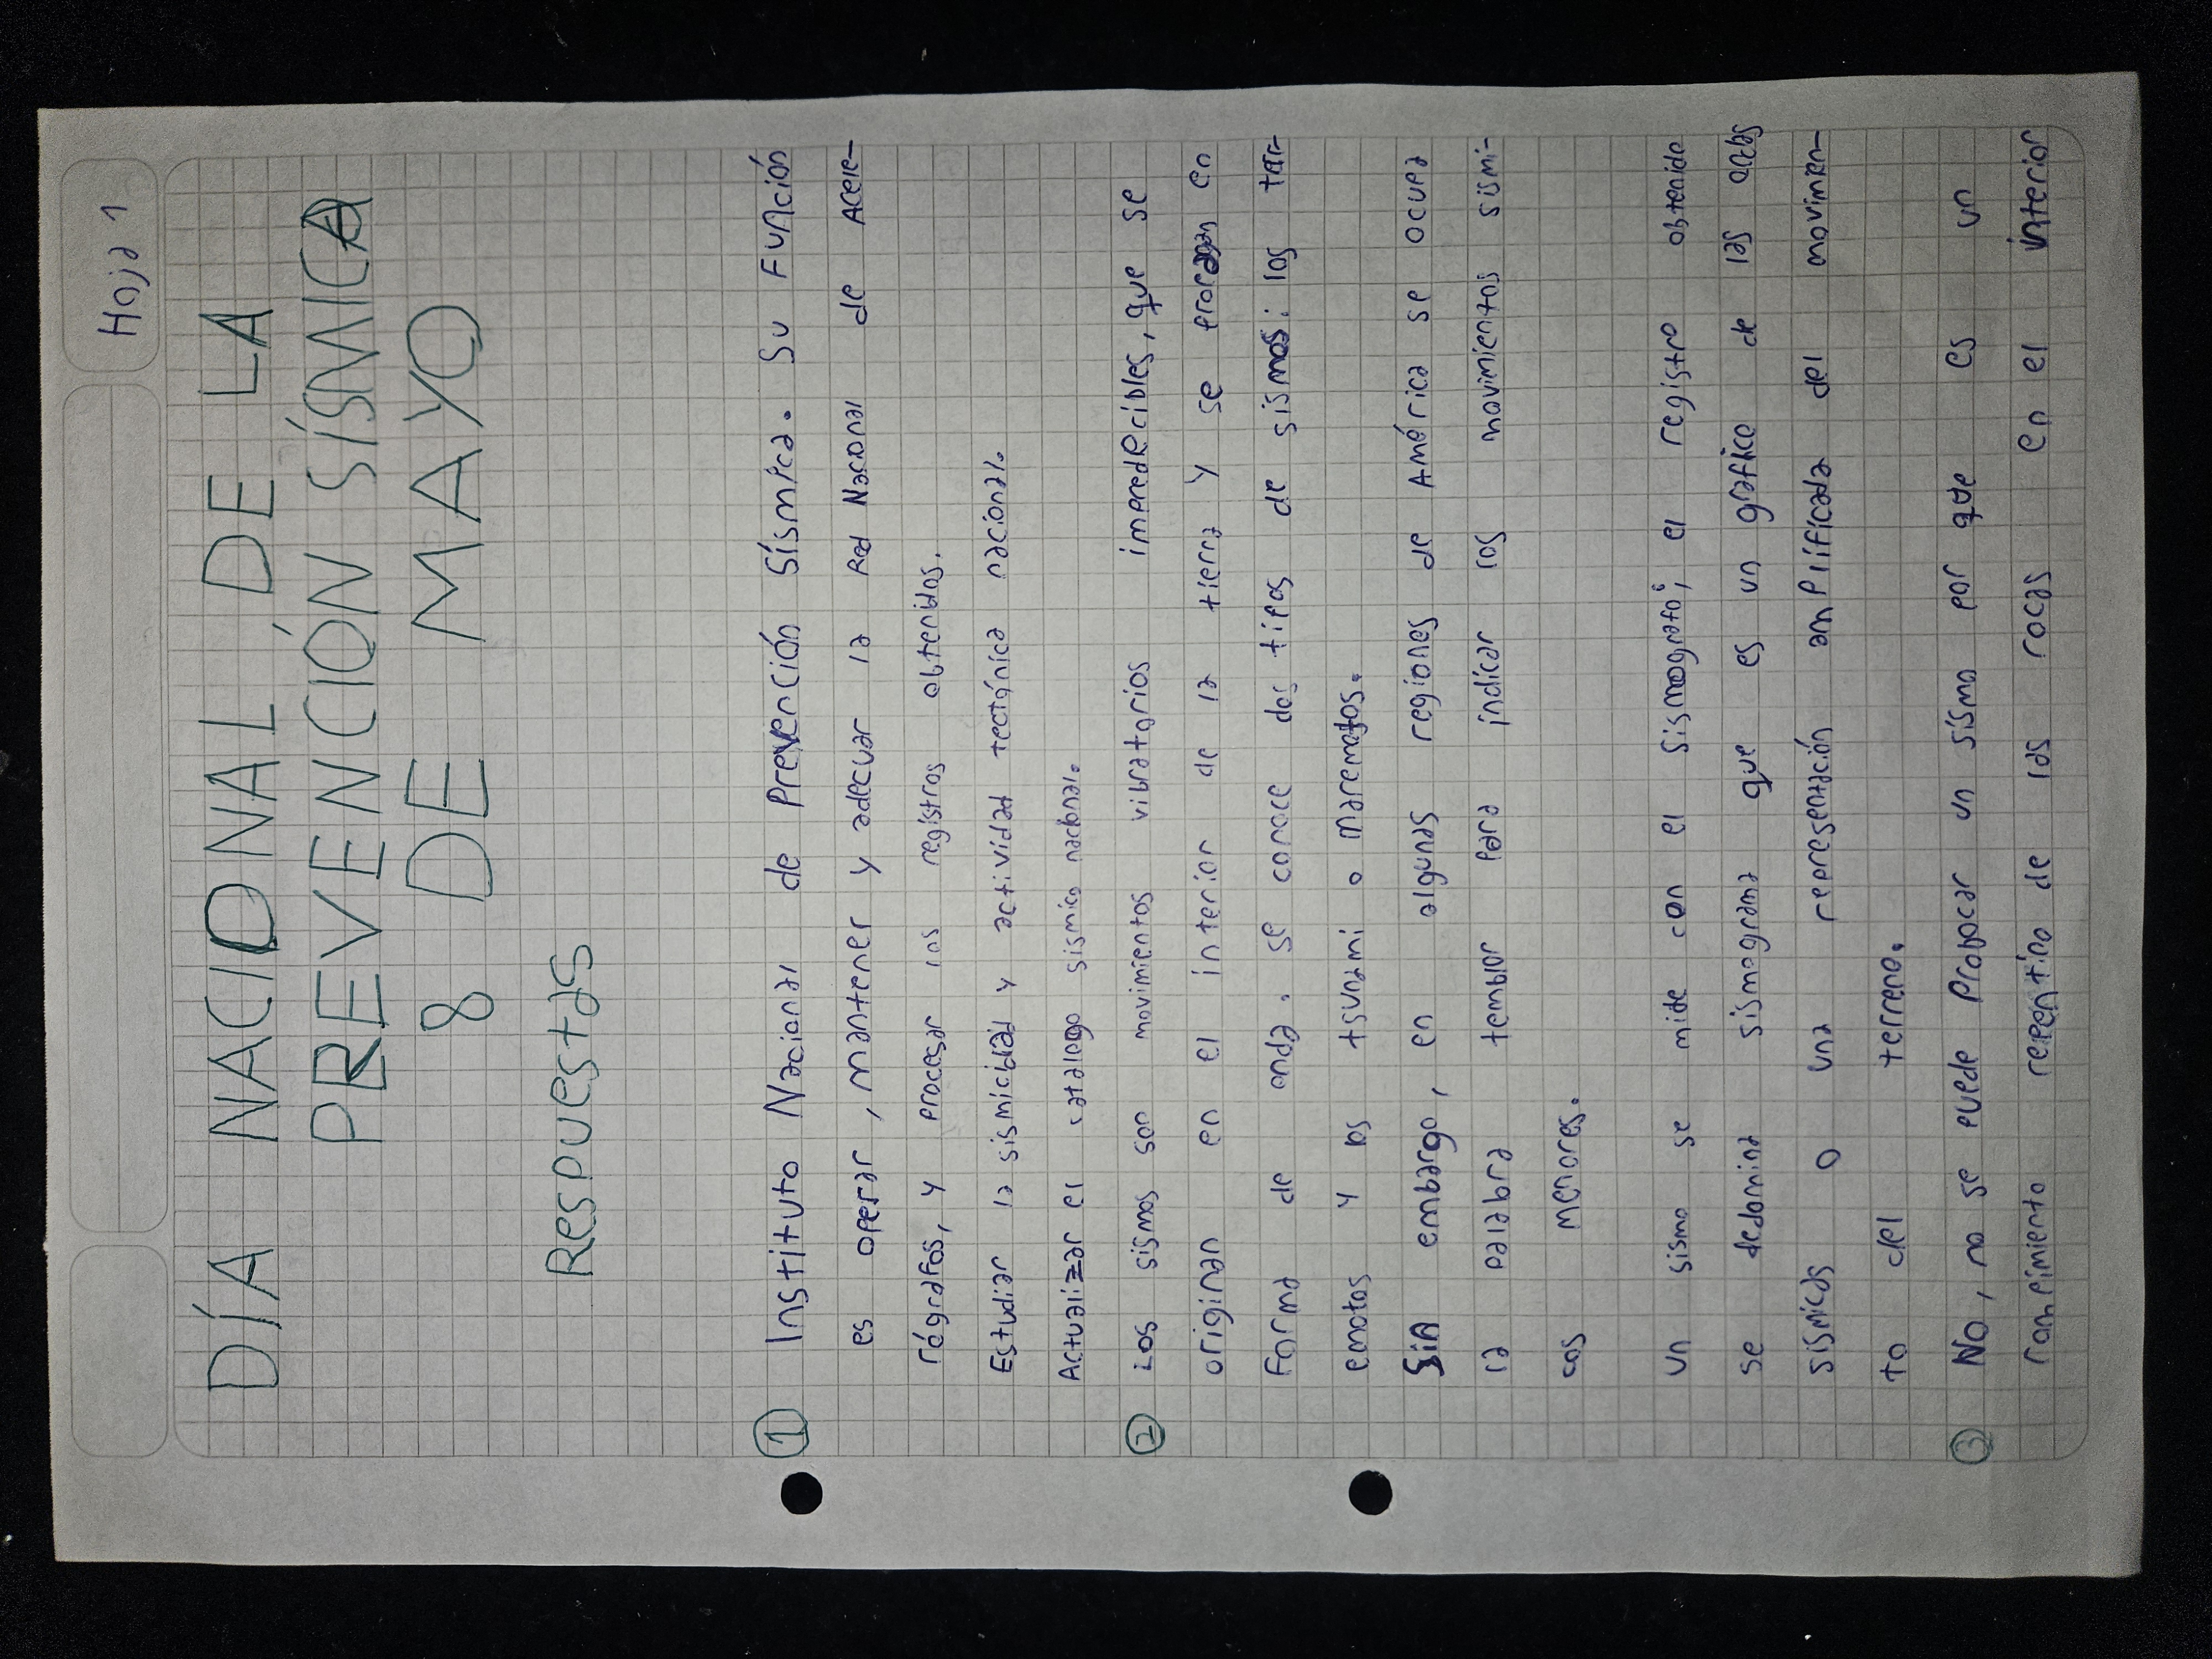 Hoja 1
DÍA NACIONAL DE LA
PREVENCIÓN SÍSMICA
8 DE MAYO
Respuestas
① Instituto Nacional de Prevención Sísmica. Su Función
es operar, mantener y adecuar la Red Nacional de Acele-
rógrafos, y procesar los registros obtenidos.
Estudiar la sismicidad y actividad tectónica nacional.
Actualizar el catálogo sismico nacional.
② Los sismos son movimientos vibratorios impredecibles, que se
originan en el interior de la tierra y se propagan en
Forma de onda. se conoce dos tipos de sismos: los terr-
emotos y los tsunami o maremotos.
Sin embargo, en algunas regiones de América se ocupa
la palabra temblor para indicar los movimientos sísmi-
cos menores.
un sismo se mide con el sismografo; el registro obtenido
se dedomina sismograma que es un grafico de las ondas
sismicas o una representación amplificada del movimien-
to del terreno.
③ No, no se puede Probocar un sismo por que es un
rompimiento repentino de las rocas en el interior